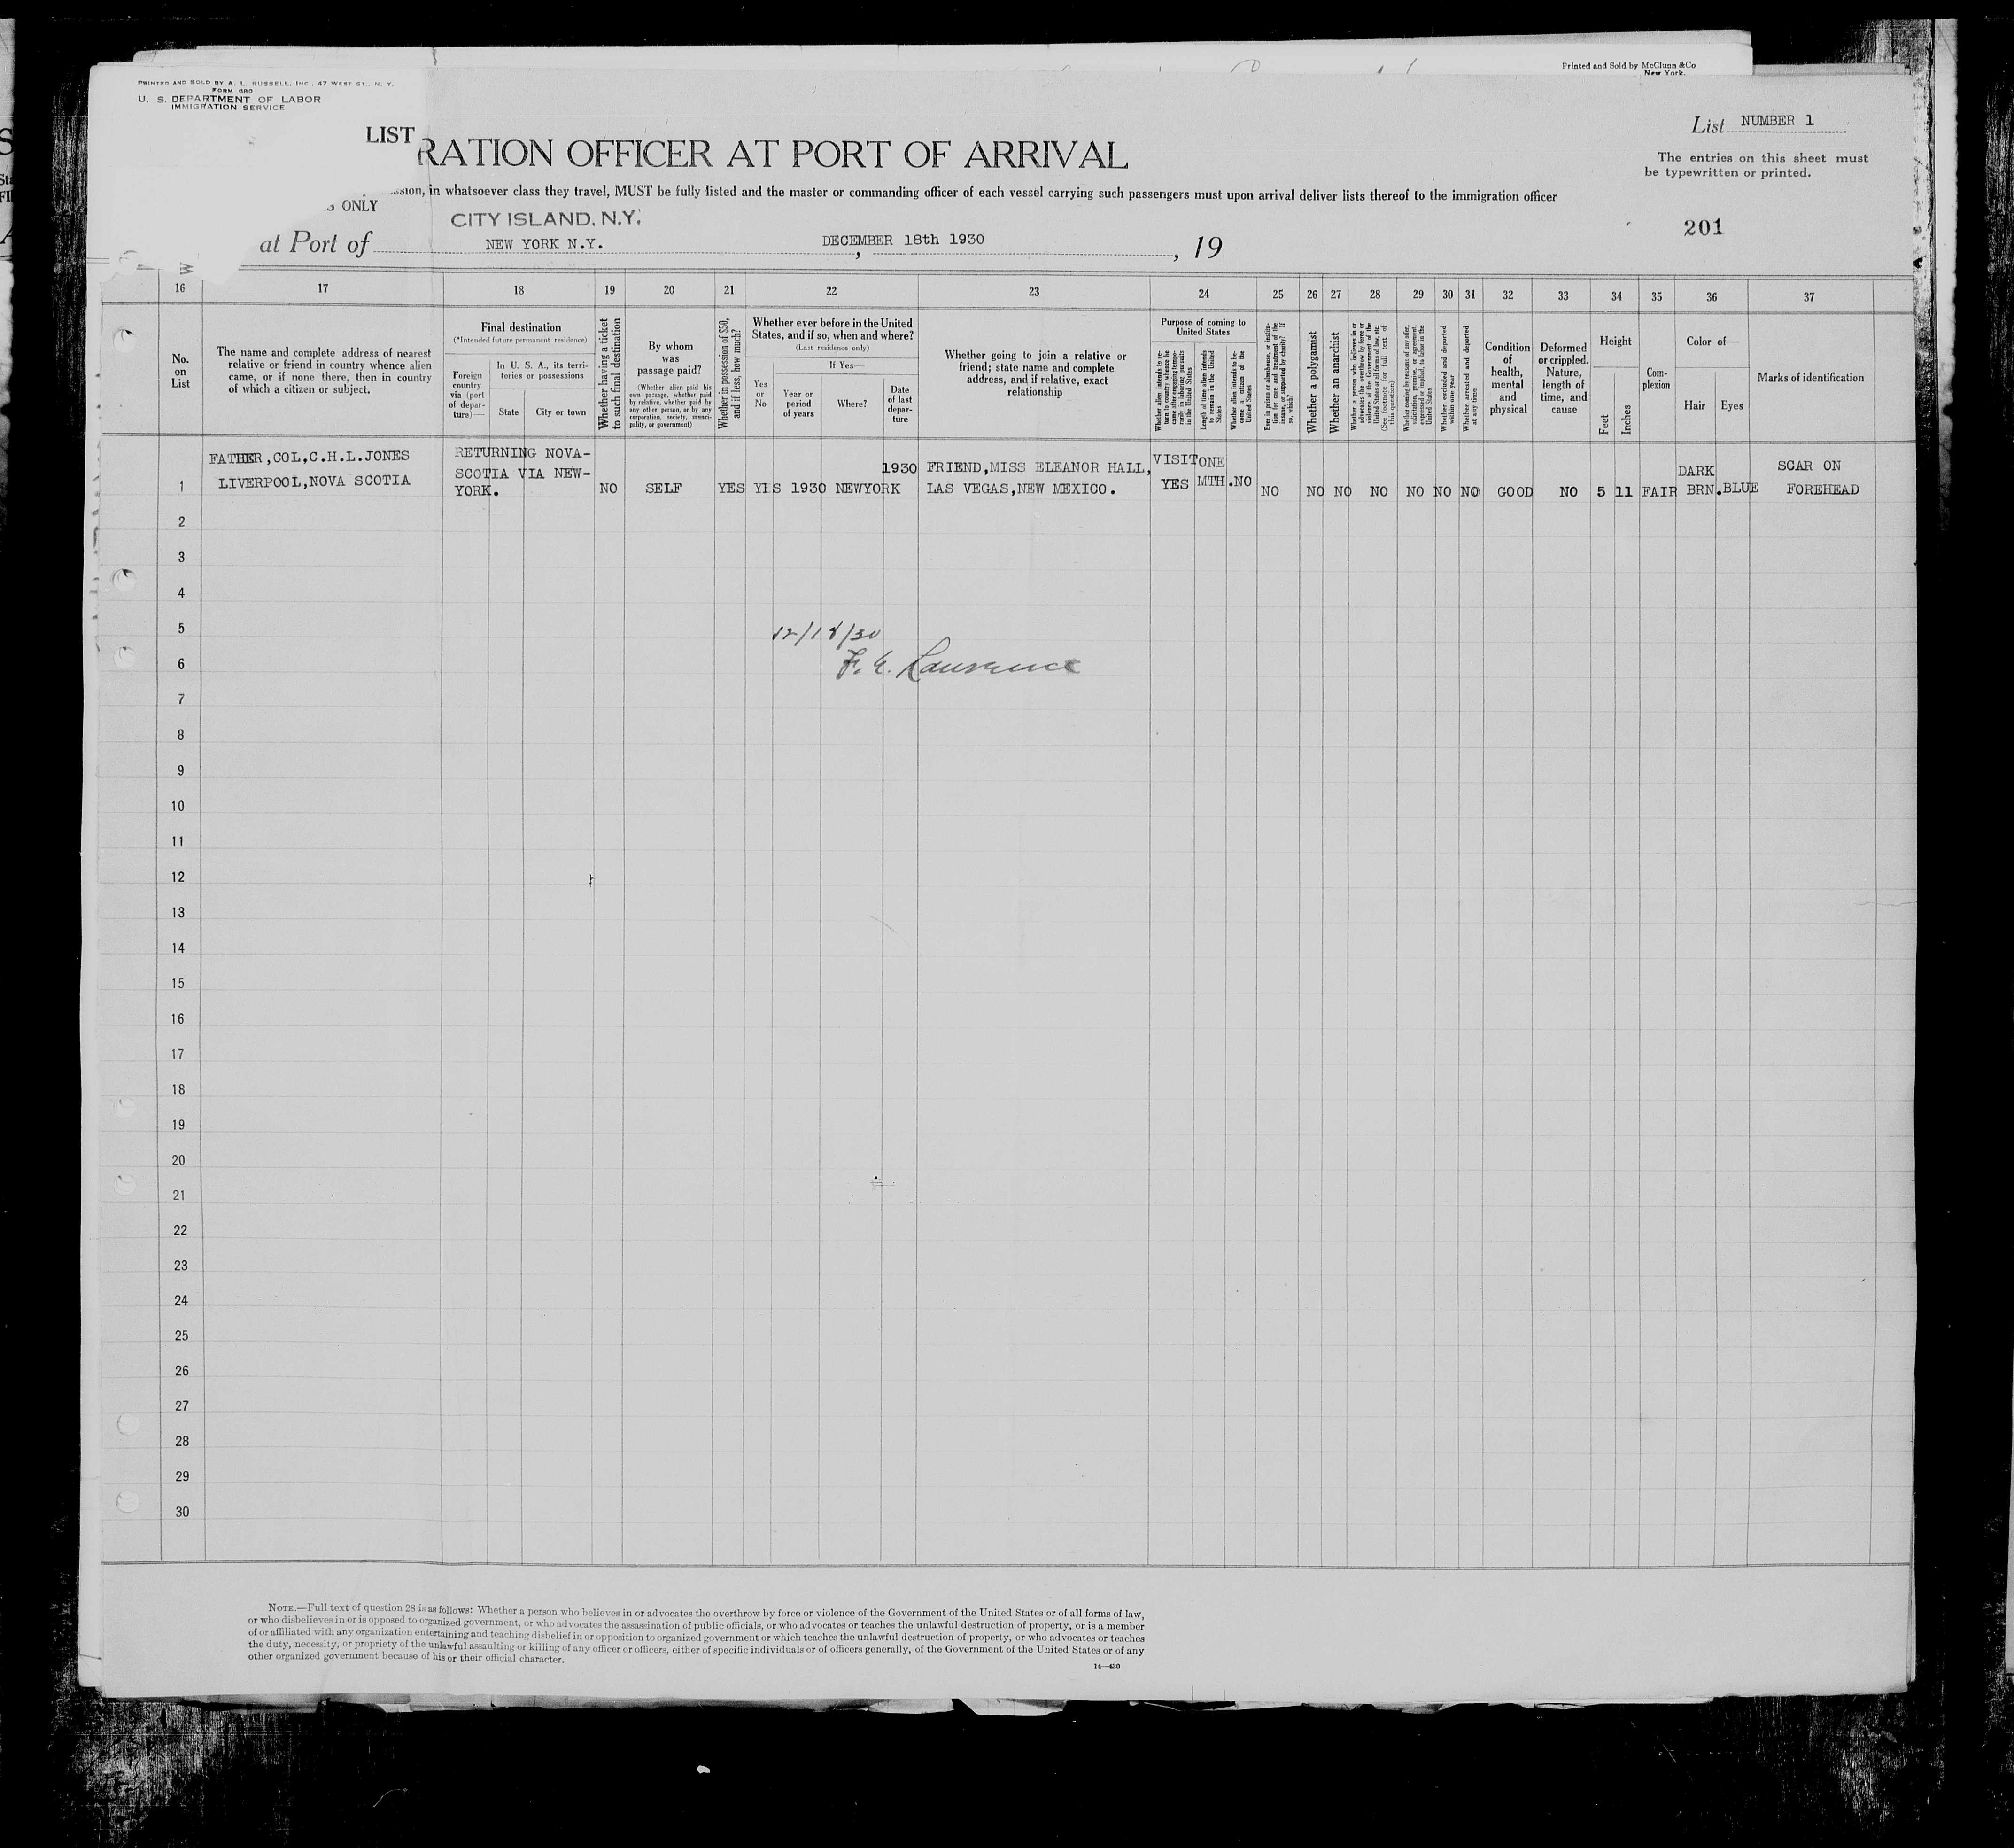 PRINTED AND SOLD BY A. L. RUSSELL, INC., 47 WEST ST., N. Y.
FORM 680
U. S. DEPARTMENT OF LABOR
IMMIGRATION SERVICE
Printed and Sold by McClunn &Co
New York.
List NUMBER 1
The entries on this sheet must
be typewritten or printed.
LIST
RATION OFFICER AT PORT OF ARRIVAL
in whatsoever class they travel, MUST be fully listed and the master or commanding officer of each vessel carrying such passengers must upon arrival deliver lists thereof to the immigration officer
ONLY
CITY ISLAND, N.Y.
201
at Port of NEW YORK N.Y. , DECEMBER 18th 1930 , 19
16 17 18 19 20 21 22 23 24 25 26 27 28 29 30 31 32 33 34 35 36 37
No.
on
List
The name and complete address of nearest
relative or friend in country whence alien
came, or if none there, then in country
of which a citizen or subject.
Final destination
(*Intended future permanent residence)
Foreign
country
via (port
of depar-
ture)—
In U. S. A., its terri-
tories or possessions
State
City or town
Whether having a ticket
to such final destination
By whom
was
passage paid?
(Whether alien paid his
own passage, whether paid
by relative, whether paid by
any other person, or by any
corporation, society, munici-
pality, or government)
Whether in possession of $50,
and if less, how much?
Whether ever before in the United
States, and if so, when and where?
(Last residence only)
Yes
or
No
If Yes—
Year or
period
of years
Where?
Date
of last
depar-
ture
Whether going to join a relative or
friend; state name and complete
address, and if relative, exact
relationship
Purpose of coming to
United States
Whether alien intends to re-
turn to country whence he
came after engaging tempo-
rarily in laboring pursuits
in the United States
Length of time alien intends
to remain in the United
States
Whether alien intends to be-
come a citizen of the
United States
Ever in prison or almshouse, or institu-
tion for care and treatment of the
insane, or supported by charity? If
so, which?
Whether a polygamist
Whether an anarchist
Whether a person who believes in or
advocates the overthrow by force or
violence of the Government of the
United States or all forms of law, etc.
(See footnote for full text of
this question)
Whether coming by reason of any offer,
solicitation, promise, or agreement,
expressed or implied, to labor in the
United States
Whether excluded and deported
within one year
Whether arrested and deported
at any time
Condition
of
health,
mental
and
physical
Deformed
or crippled.
Nature,
length of
time, and
cause
Height
Feet
Inches
Com-
plexion
Color of—
Hair
Eyes
Marks of identification
FATHER,COL,C.H.L.JONES RETURNING NOVA- 1930 FRIEND,MISS ELEANOR HALL, VISIT ONE DARK SCAR ON
LIVERPOOL,NOVA SCOTIA SCOTIA VIA NEW-
1 YORK. NO SELF YES YES 1930 NEWYORK LAS VEGAS,NEW MEXICO. YES MTH.NO NO NO NO NO NO NO NO GOOD NO 5 11 FAIR BRN.BLUE FOREHEAD
2
3
4
5
12/18/30
6
F. E. Lawrence
7
8
9
10
11
12
13
14
15
16
17
18
19
20
21
22
23
24
25
26
27
28
29
30
NOTE.—Full text of question 28 is as follows: Whether a person who believes in or advocates the overthrow by force or violence of the Government of the United States or of all forms of law,
or who disbelieves in or is opposed to organized government, or who advocates the assassination of public officials, or who advocates or teaches the unlawful destruction of property, or is a member
of or affiliated with any organization entertaining and teaching disbelief in or opposition to organized government or which teaches the unlawful destruction of property, or who advocates or teaches
the duty, necessity, or propriety of the unlawful assaulting or killing of any officer or officers, either of specific individuals or of officers generally, of the Government of the United States or of any
other organized government because of his or their official character.
14—430